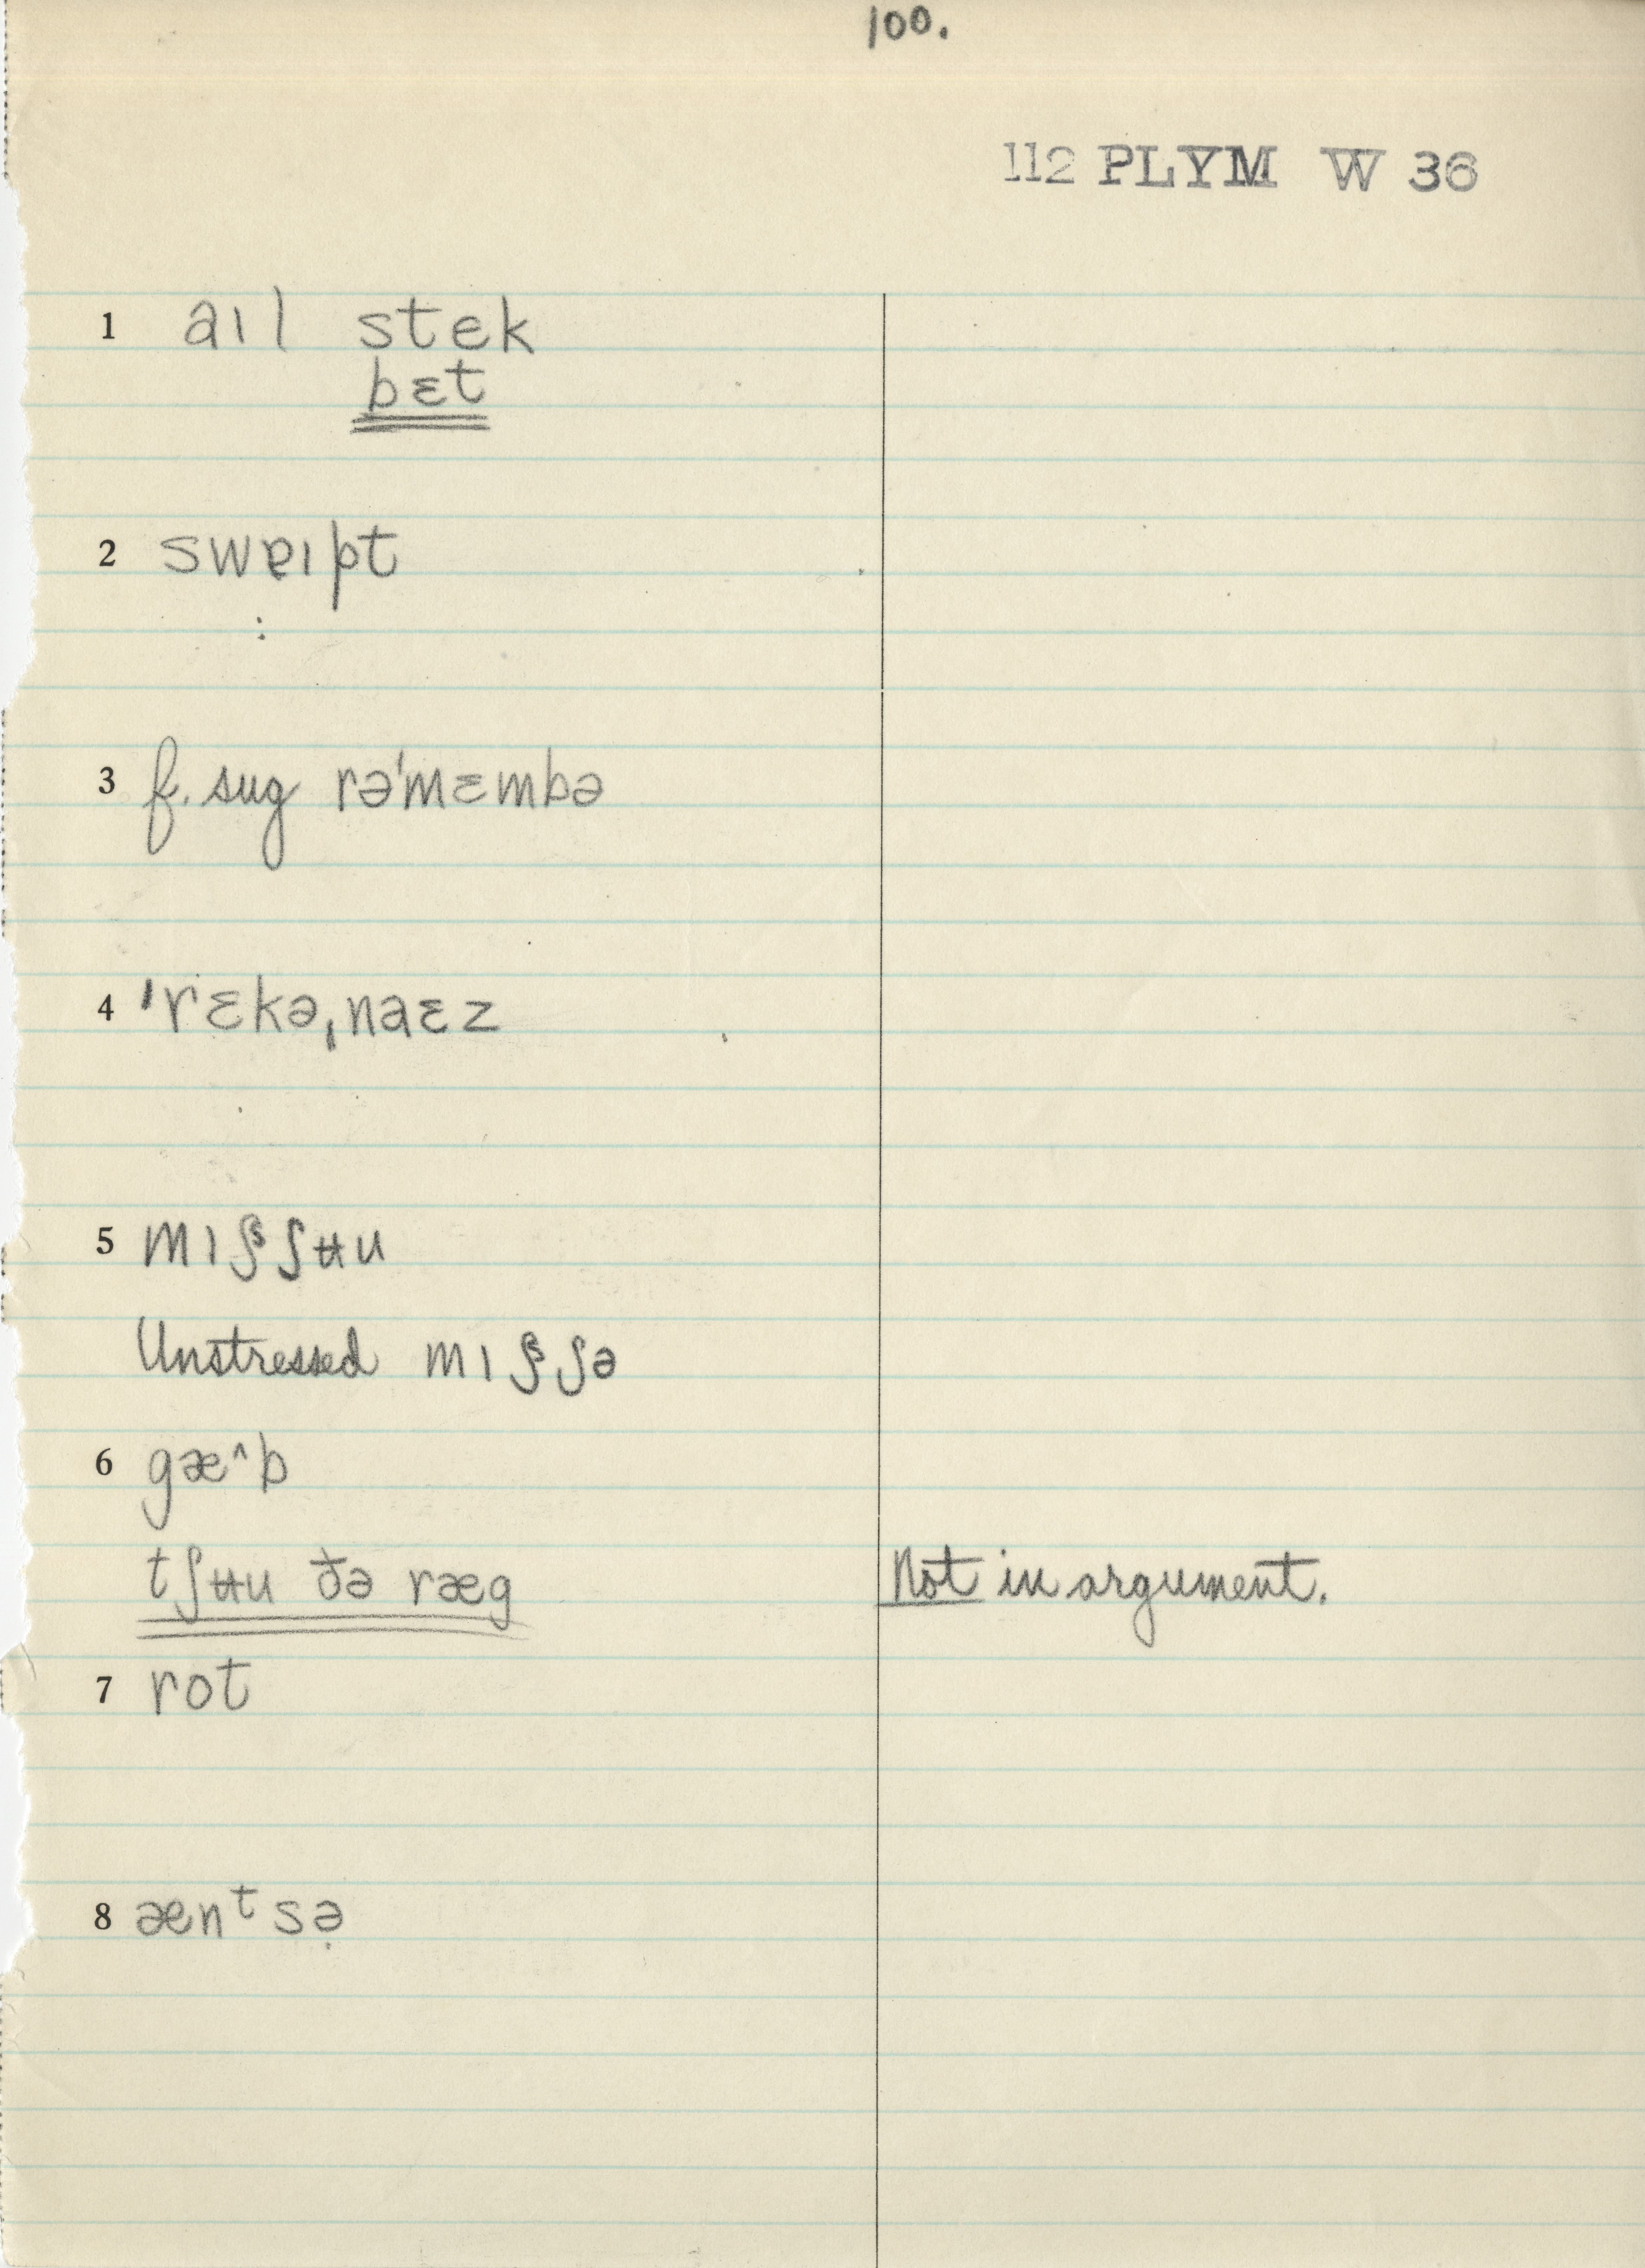 100.
112 PLYM W 36
1 aɪl stek
bɛt
2 swɐɪpt
:
3 f. sug rə'mɛmbə
4 ˈrɛkəˌnaɛz
5 mɪʃˢ ʃʉu
Unstressed mɪʃˢ ʃə
6 gæ^b
tʃʉu ðə ræg Not in argument.
7 rot
8 ænᵗsə̣